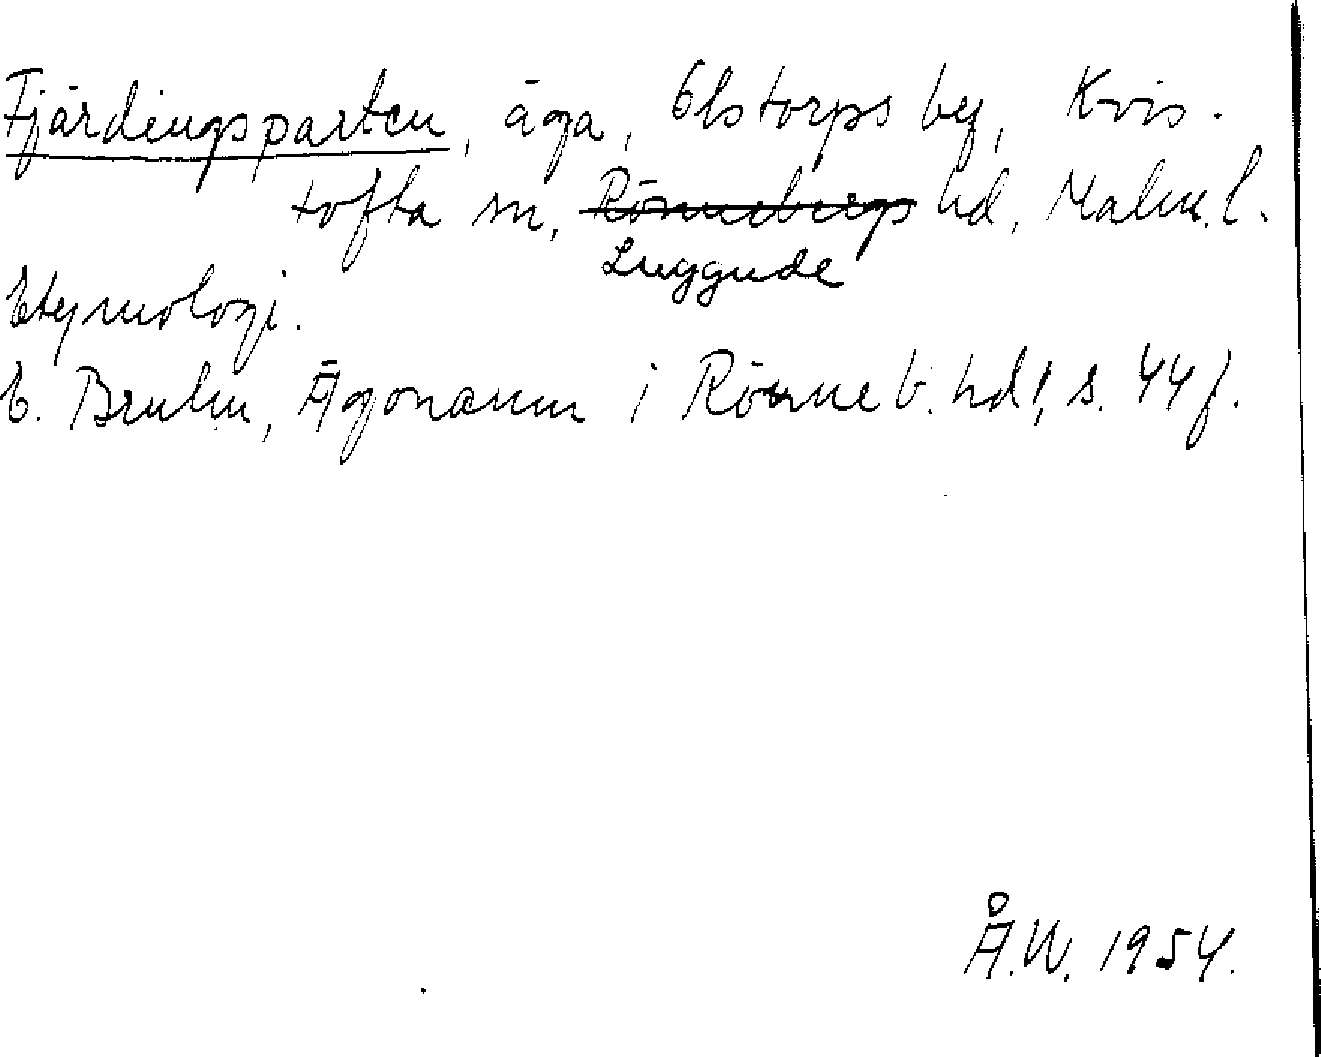 Fjärdingsparten, äga, Elstorps by, Kvis-
tofta sn, Rönnebergs hd, Malm. l.
Luggude
Etymologi.
E. Bruhn, Ägonamn i Rönneb. hd!, s. 44 f.
Å.W. 1954.